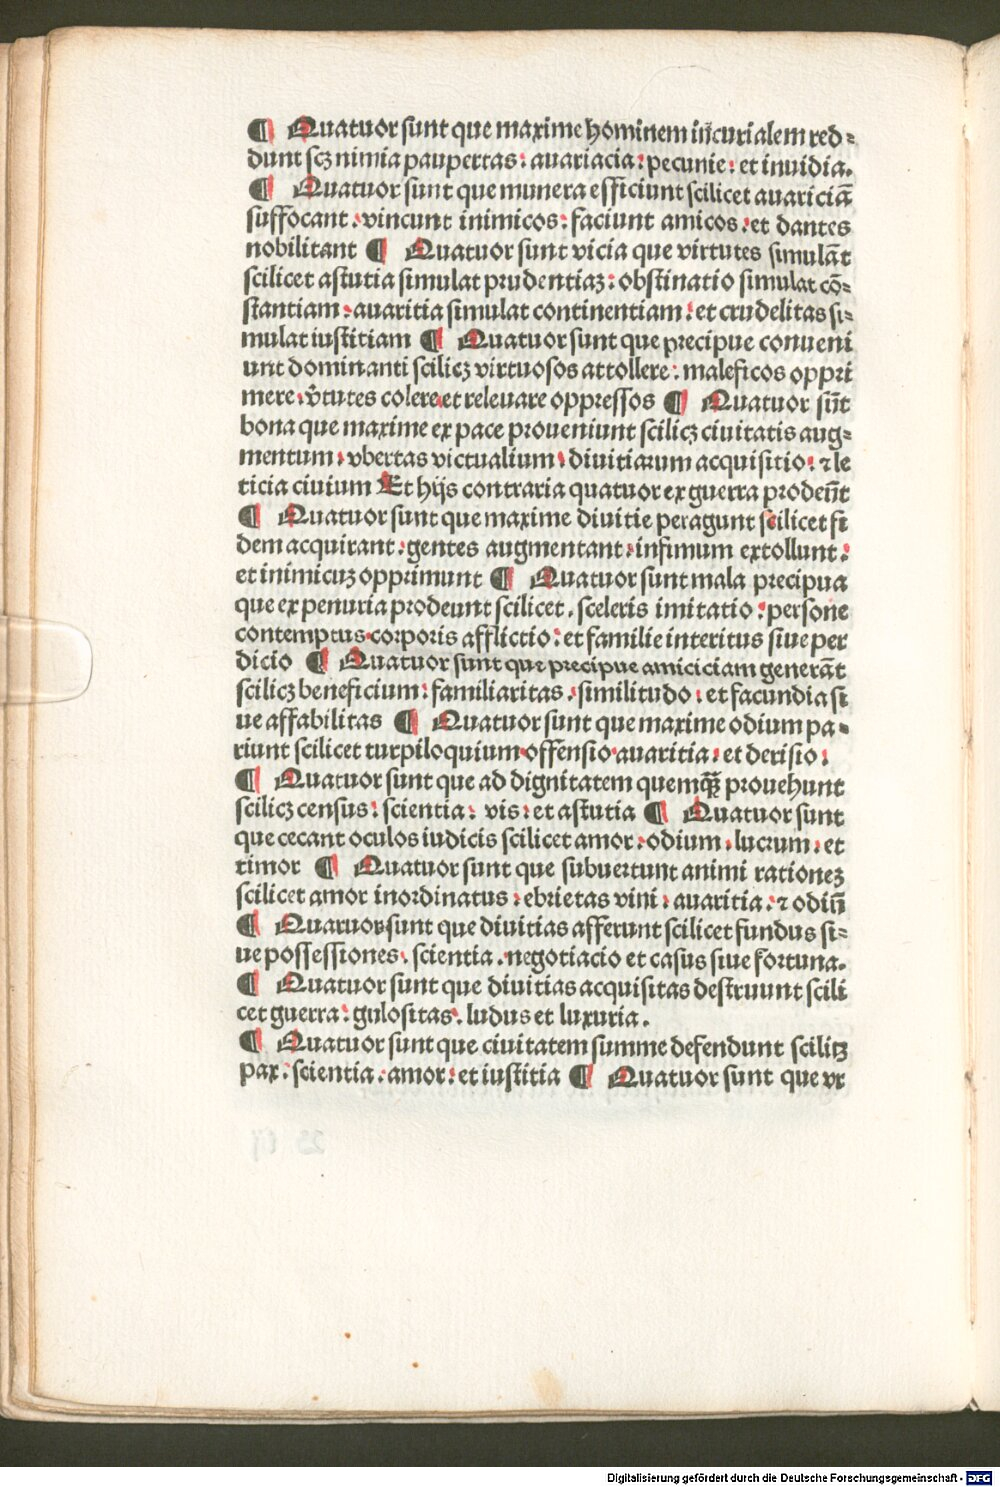 ¶ Quatuor sunt que maxime hominem incurialem red⸗
dunt scꝫ nimia paupertas: auariacia: pecunie: et inuidia.
¶ Quatuor sunt que munera efficiunt scilicet auariciā
suffocant. vincunt inimicos: faciunt amicos. et dantes
nobilitant ¶ Quatuor sunt vicia que virtutes simulāt
scilicet astutia simulat prudentiaꝫ: obstinatio simulat cō⸗
stantiam: auaritia simulat continentiam: et crudelitas si⸗
mulat iustitiam ¶ Quatuor sunt que precipue conueni
unt dominanti scilicꝫ virtuosos attollere: maleficos oppri
mere. v̄tutes colere et releuare oppressos ¶ Quatuor sūt
bona que maxime ex pace proueniunt scilicꝫ ciuitatis aug⸗
mentum. vbertas victualium. diuitiarum acquisitio: ⁊ le
ticia ciuium Et hijs contraria quatuor ex guerra prodeūt
¶ Quatuor sunt que maxime diuitie peragunt scilicet fi
dem acquirant: gentes augmentant: infimum extollunt:
et inimicuꝫ opprimunt ¶ Quatuor sunt mala precipua
que ex penuria prodeunt scilicet. sceleris imitatio: persone
contemptus. corporis afflictio: et familie interitus siue per
dicio ¶ Quatuor sunt que precipue amiciciam generāt
scilicꝫ beneficium: familiaritas. similitudo: et facundia si
ue affabilitas ¶ Quatuor sunt que maxime odium pa⸗
riunt scilicet turpiloquium. offensio. auaritia: et derisio:
¶ Quatuor sunt que ad dignitatem quemqꝫ prouehunt
scilicꝫ census: scientia: vis: et astutia ¶ Quatuor sunt
que cecant oculos iudicis scilicet amor. odium. lucrum. et
timor ¶ Quatuor sunt que subuertunt animi rationeꝫ
scilicet amor inordinatus: ebrietas vini. auaritia. ⁊ odiū
¶ Quatuor sunt que diuitias afferunt scilicet fundus si⸗
ue possessiones. scientia. negotiacio et casus siue fortuna.
¶ Quatuor sunt que diuitias acquisitas destruunt scili
cet guerra: gulositas. ludus et luxuria.
¶ Quatuor sunt que ciuitatem summe defendunt scilitꝫ
pax. scientia. amor: et iustitia ¶ Quatuor sunt que vr
Digitalisierung gefördert durch die Deutsche Forschungsgemeinschaft - DFG